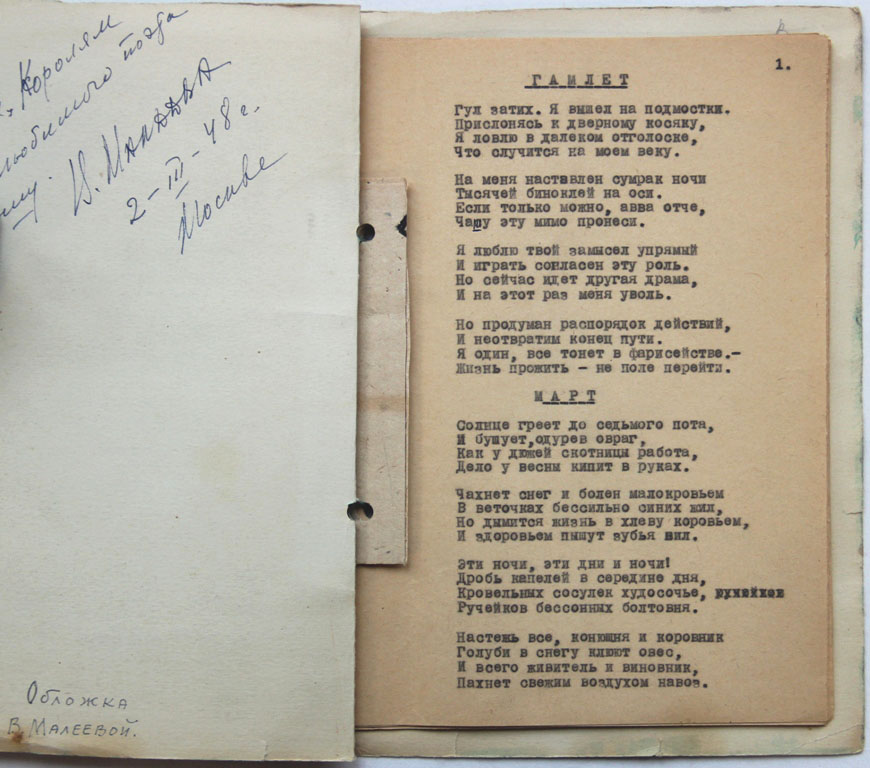 Королям
любимого поэта
В. Малаева
2-III-48 г.
Москва
Обложка
В. Малеевой.
1.
ГАМЛЕТ
Гул затих. Я вышел на подмостки.
Прислонясь к дверному косяку,
Я ловлю в далеком отголоске,
Что случится на моем веку.
На меня наставлен сумрак ночи
Тысячей биноклей на оси.
Если только можно, авва отче,
Чашу эту мимо пронеси.
Я люблю твой замысел упрямый
И играть согласен эту роль.
Но сейчас идет другая драма,
И на этот раз меня уволь.
Но продуман распорядок действий,
И неотвратим конец пути.
Я один, все тонет в фарисействе.-
Жизнь прожить - не поле перейти.
МАРТ
Солнце греет до седьмого пота,
И бушует,одурев овраг,
Как у дюжей скотницы работа,
Дело у весны кипит в руках.
Чахнет снег и болен малокровьем
В веточках бессильно синих жил,
Но дымится жизнь в хлеву коровьем,
И здоровьем пышут зубья вил.
Эти ночи, эти дни и ночи!
Дробь капелей в середине дня,
Кровельных сосулек худосочье,
Ручейков бессонных болтовня.
Настежь все, конюшня и коровник
Голуби в снегу клюют овес,
И всего живитель и виновник,
Пахнет свежим воздухом навоз.